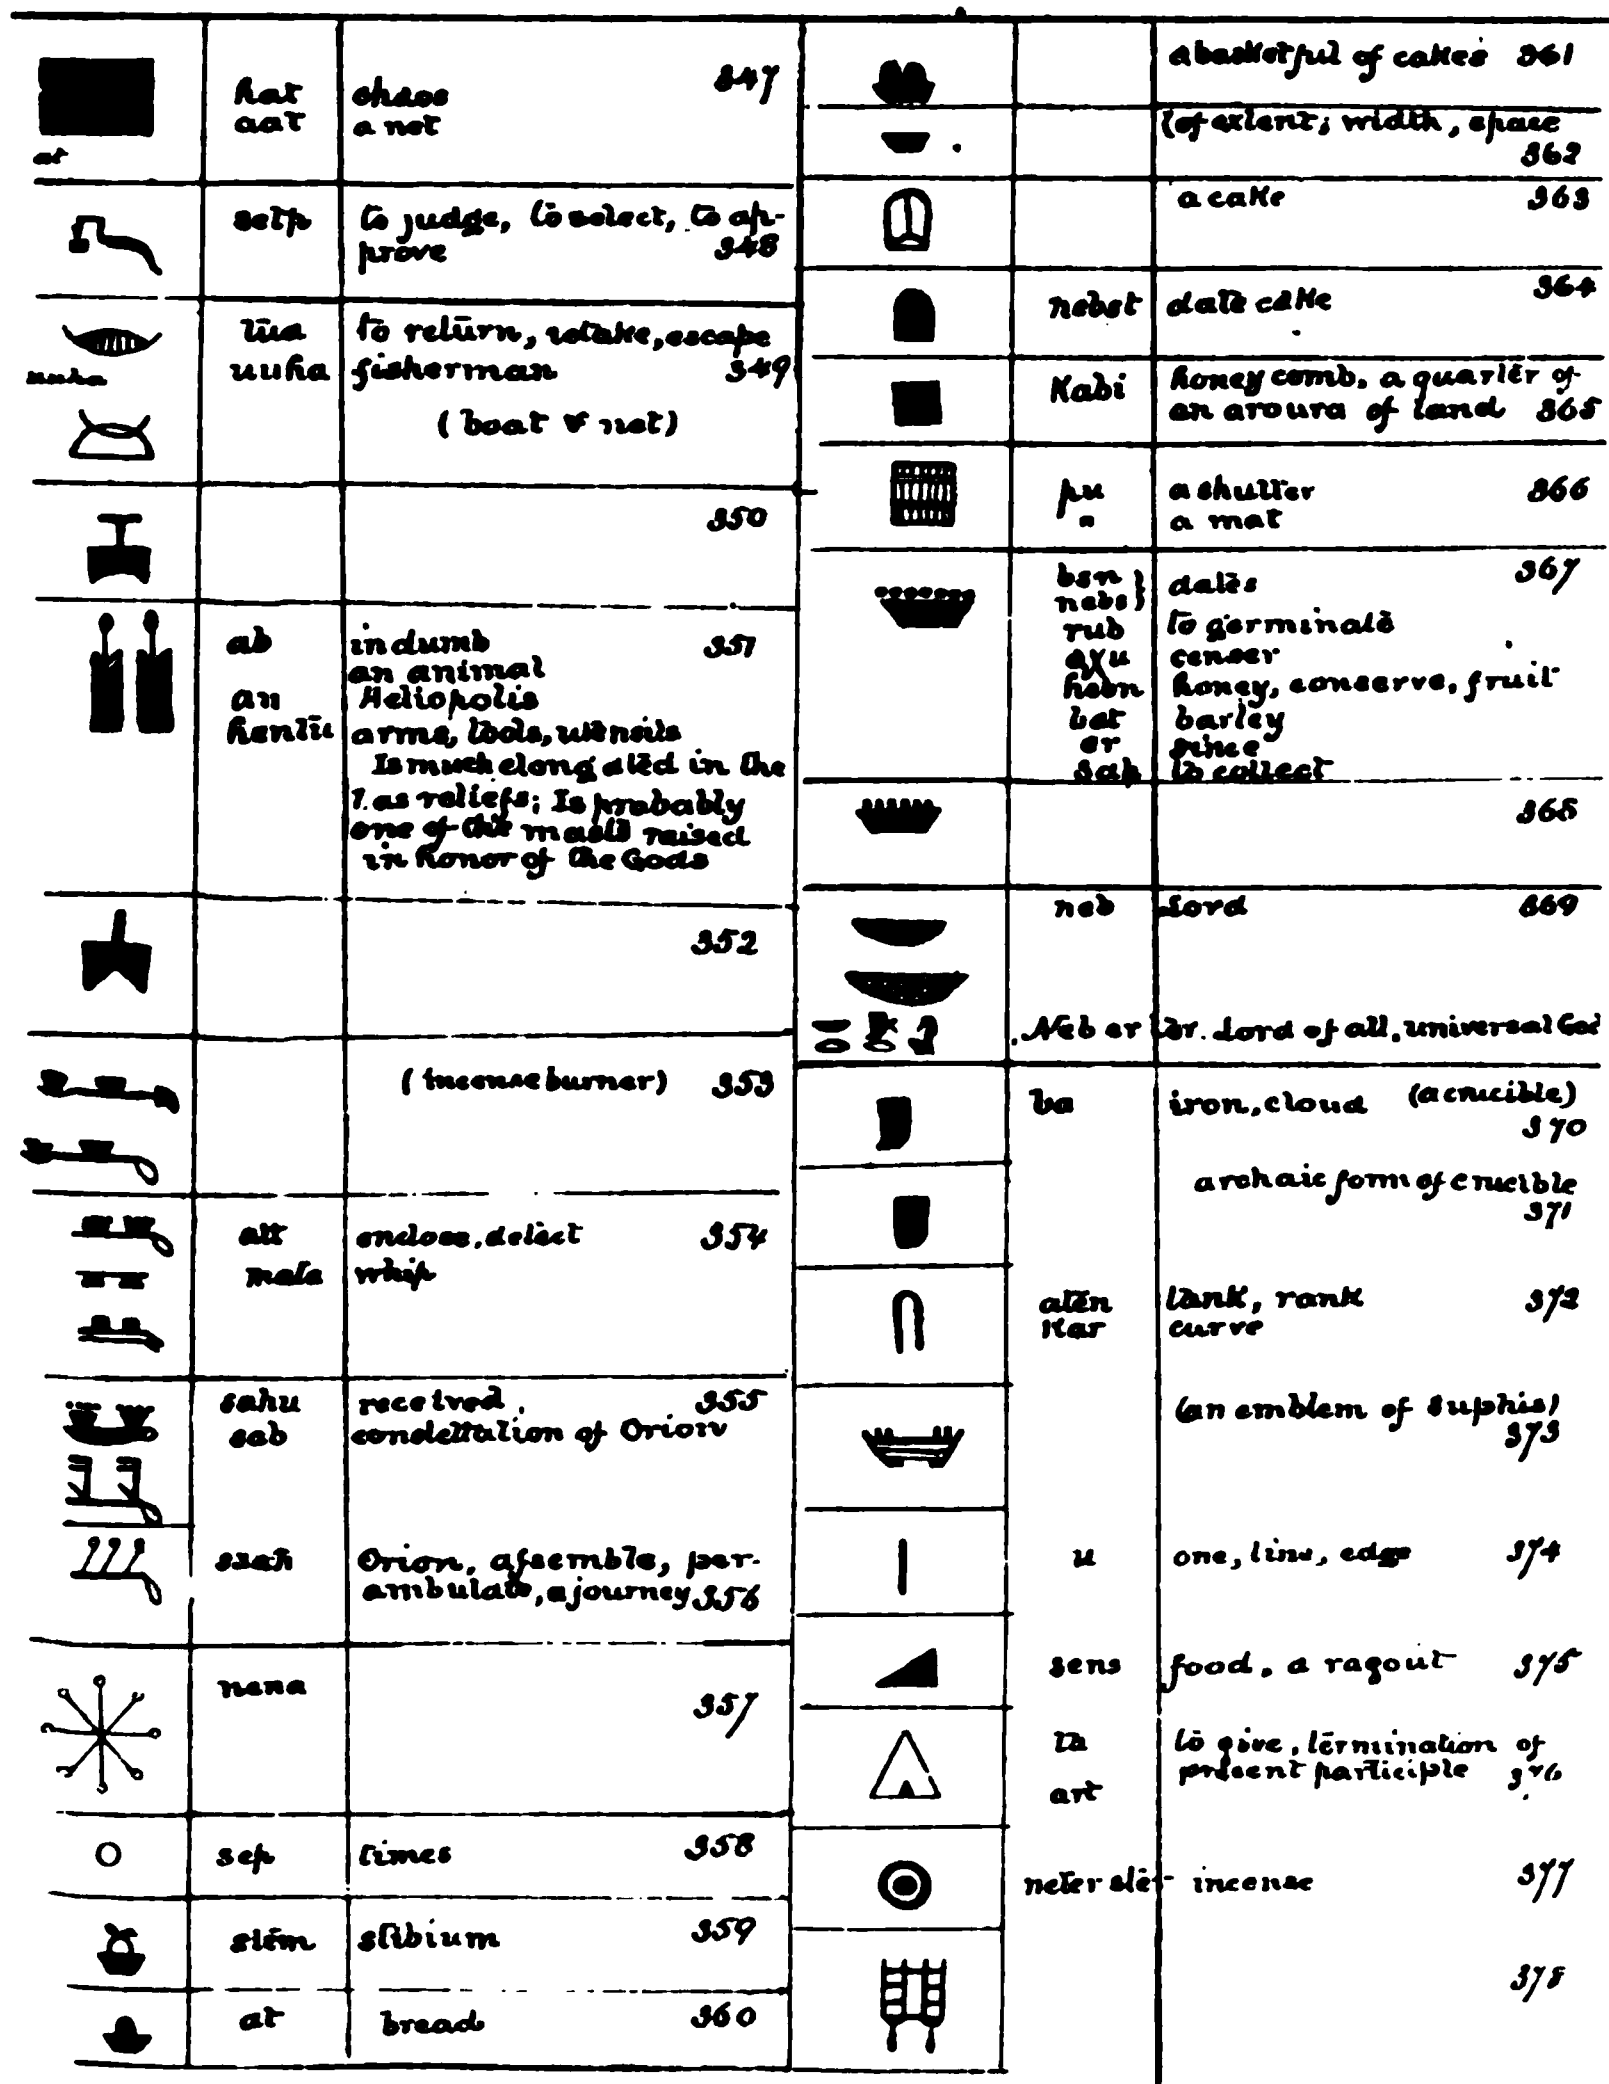 hat chaos 347
aat a net
at
setp to judge, to select, to ap-
prove 348
tua to return, retake, escape
uuha fisherman 349
uuha
(boat & net)
350
ab in dumb 351
an animal
an Heliopolis
hentu arms, tools, utensils
Is much elongated in the
T. as reliefs; Is probably
one of the masts raised
in honor of the Gods
352
(incense burner) 353
att enclose, detect 354
mata whip
sahu received, 355
sab constellation of Orion
sxah Orion, assemble, per-
ambulate, a journey 356
nena
357
sep times 358
stem stibium 359
at bread 360
a basketful of cakes 361
(of extent; width, space
362
a cake 363
nebst date cake 364
Kabi honey comb, a quarter of
an aroura of land 365
pu a shutter 366
" a mat
bsn } dates 367
nebs }
rub to germinate
axu censer
hebn honey, conserve, fruit
bet barley
er since
sap to collect
368
neb Lord 369
Neb er ter. Lord of all, universal God
ba iron, cloud (a crucible)
370
archaic form of crucible
371
aten tank, rank 372
Kar curve
(an emblem of Suphis)
373
u one, line, edge 374
sens food, a ragout 375
ta to give, termination of
present participle 376
art
neter ster incense 377
378